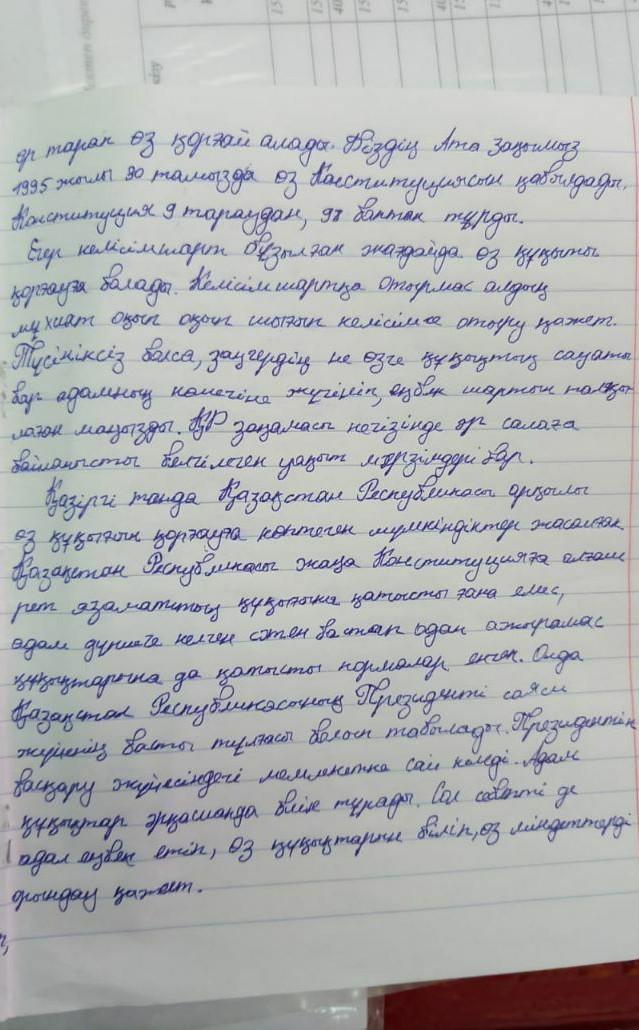 әр тарап өз қорғай алады. Біздің Ата заңымыз
1995 жылы 30 тамызда өз Конституциясын қабылдады.
Конституция 9 тараудан, 98 баптан тұрды.
Егер келісімшарт бұзылған жағдайда өз құқығы
қорғауға болады. Келісімшартқа отырмас алдың
мұхият оқып оқып шығып келісімге отыру қажет.
Түсініксіз болса, заңгердің не өзге құқықтың сауаты
бар адамның көмегіне жүгініп, еңбек шартын талқы
лаған маңызды. ҚР заңамасы негізінде әр салаға
байланысты белгіленген уақыт мерзімдері бар.
Қазіргі таңда Қазақстан Республикасы арқылы
өз құқығын қорғауға көптеген мүмкіндіктер жасалған
Қазақстан Республикасы жаңа Конституцияға алғаш
рет азаматтың құқығына қатысты ғана емес,
адам дүниеге келген сәттен бастап одан ажырамас
құқықтарына да қатысты нормалар енген. Онда
Қазақстан Республикасының Президенті саяси
жүйенің басты тұлғасы болып табылады. Президентік
басқару жүйесіндегі мемлекетке сай келеді. Адам
құқықтар әрқашанда биік тұрады. Сол себепті де
адал еңбек етіп, өз құқықтарын біліп, өз міндеттерді
орындау қажет.